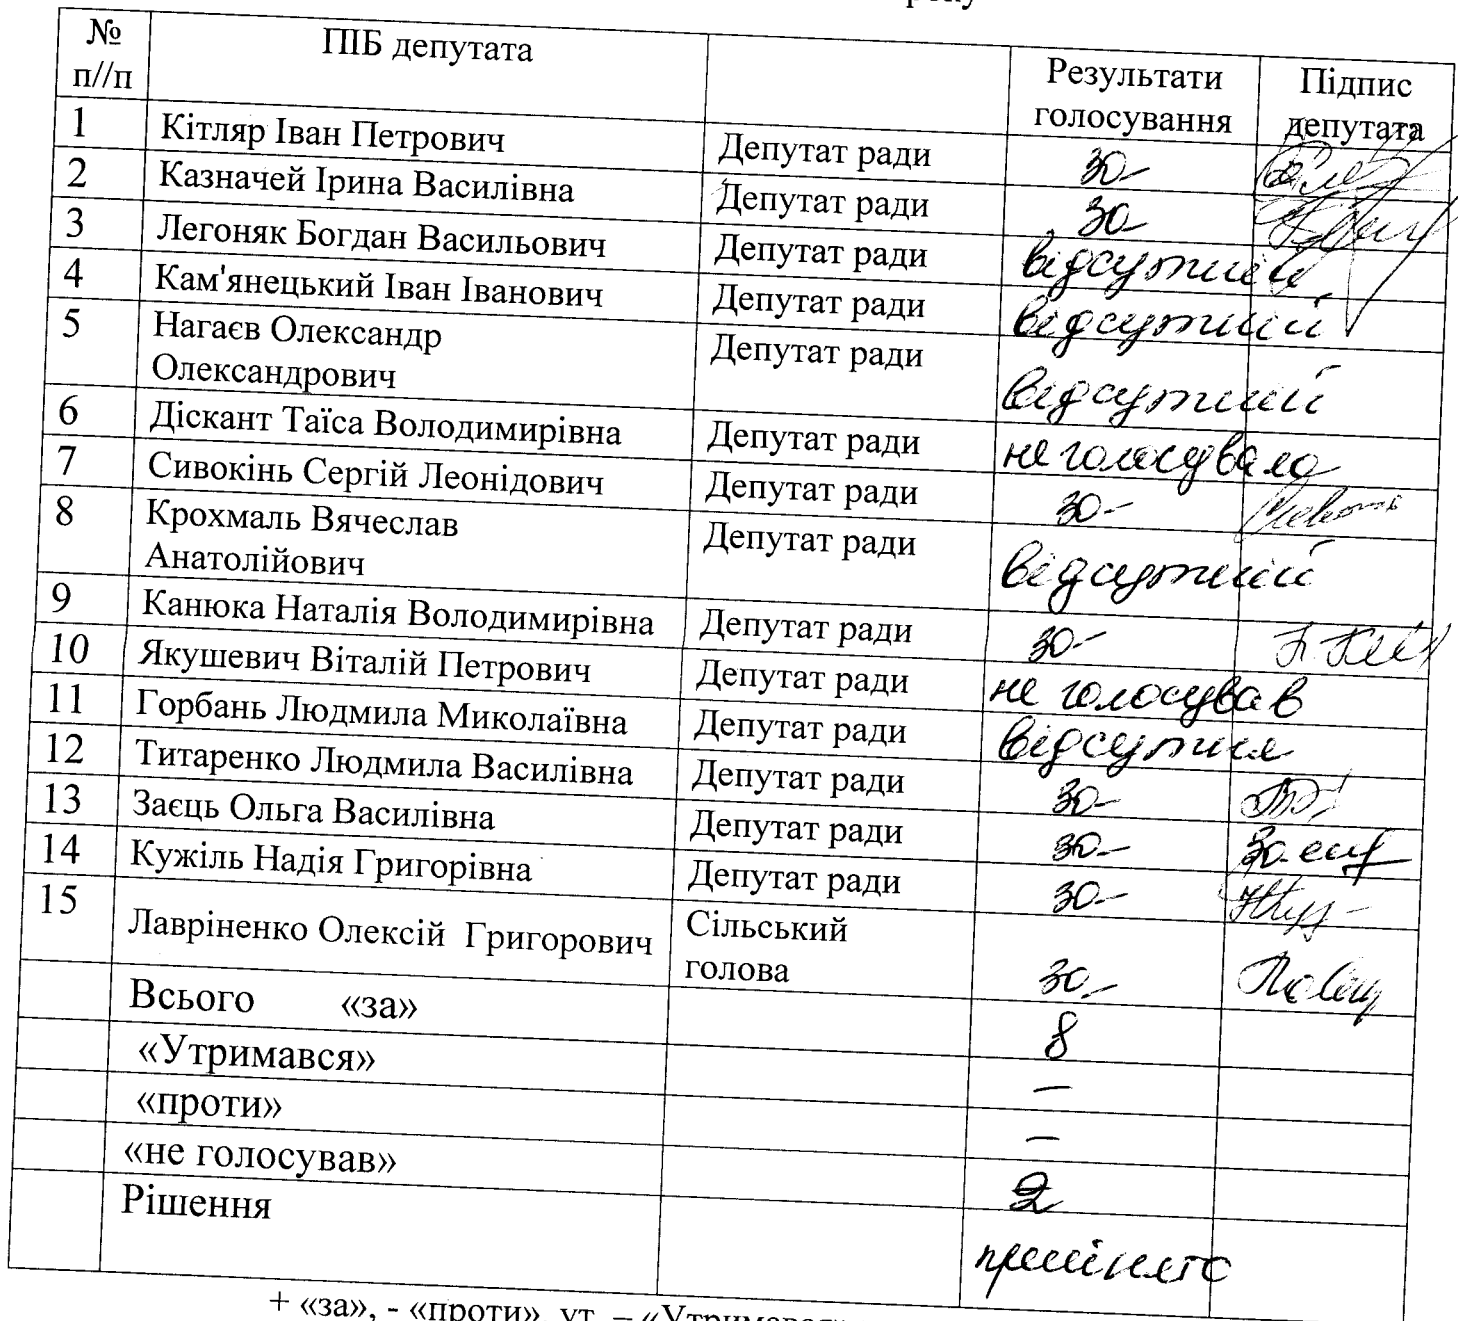 № п//п | ПІБ депутата | | Результати голосування | Підпис депутата
1 | Кітляр Іван Петрович | Депутат ради | за
2 | Казначей Ірина Василівна | Депутат ради | за
3 | Легоняк Богдан Васильович | Депутат ради | відсутній
4 | Кам'янецький Іван Іванович | Депутат ради | відсутній
5 | Нагаєв Олександр Олександрович | Депутат ради | відсутній
6 | Діскант Таїса Володимирівна | Депутат ради | не голосувала
7 | Сивокінь Сергій Леонідович | Депутат ради | за
8 | Крохмаль Вячеслав Анатолійович | Депутат ради | відсутній
9 | Канюка Наталія Володимирівна | Депутат ради | за
10 | Якушевич Віталій Петрович | Депутат ради | не голосував
11 | Горбань Людмила Миколаївна | Депутат ради | відсутня
12 | Титаренко Людмила Василівна | Депутат ради | за
13 | Заєць Ольга Василівна | Депутат ради | за
14 | Кужіль Надія Григорівна | Депутат ради | за
15 | Лавріненко Олексій Григорович | Сільський голова | за
Всього «за» | 8
«Утримався» | –
«проти» | –
«не голосував» | 2
Рішення | прийнято
+ «за», - «проти», ут. – «Утримався»